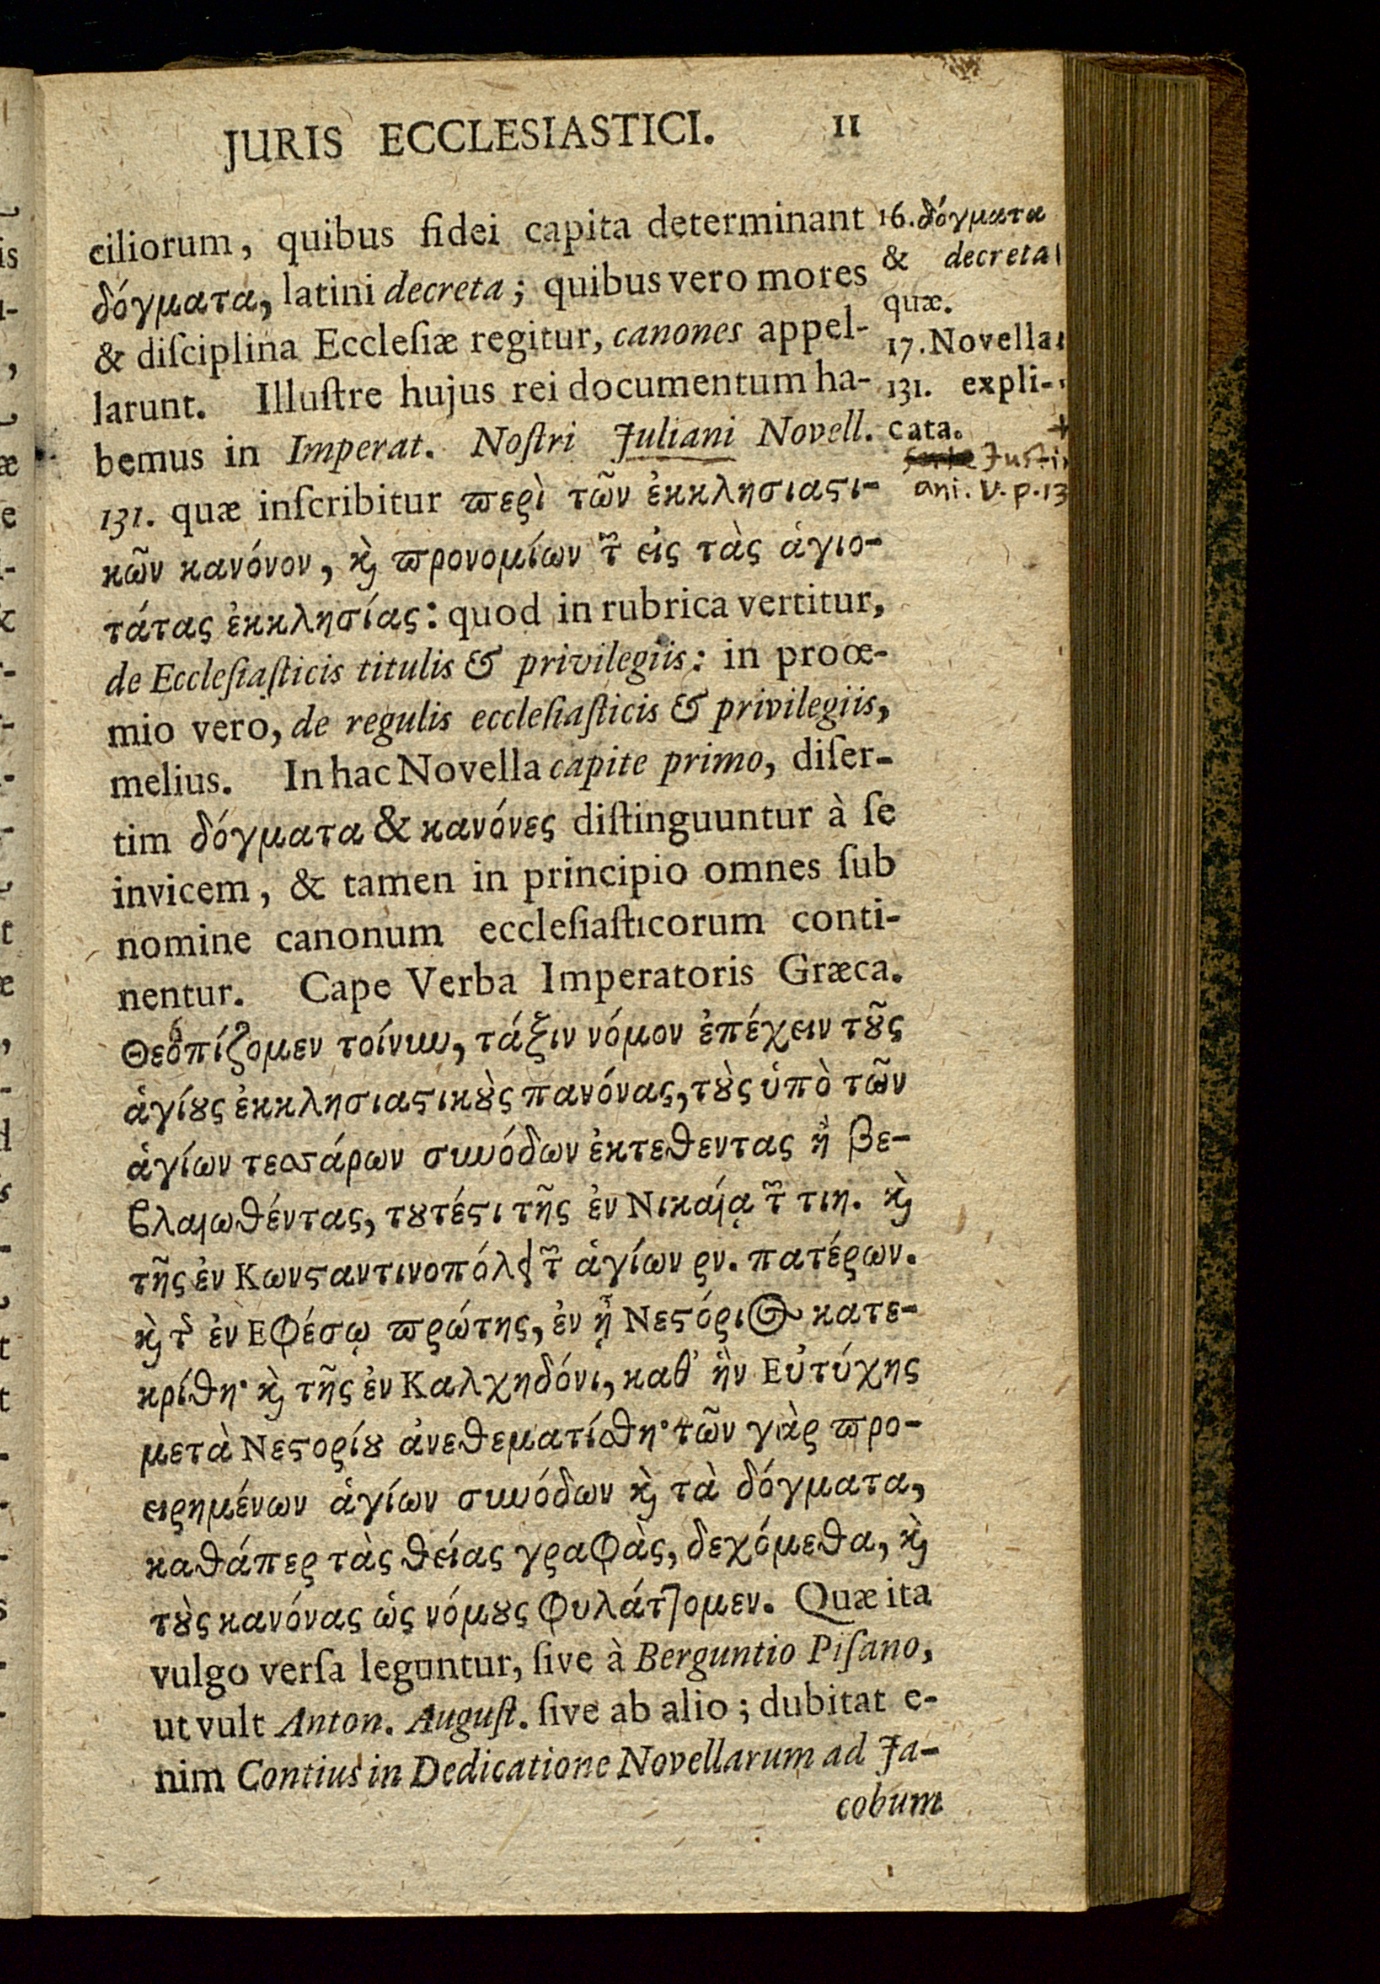 JURIS ECCLESIASTICI. 11
ciliorum, quibus fidei capita determinant
δόγματα, latini decreta; quibus vero mores
& diſciplina Eccleſiæ regitur, canones appel-
larunt. Illuſtre hujus rei documentum ha-
bemus in Imperat. Noſtri Juliani Novell.
131. quæ inſcribitur ϖερὶ τῶν ἐκκλησιαϛι-
κῶν κανόνον, ϗ̀ ϖρονομίων τ῀ εἰς τὰς ἁγιο-
τάτας ἐκκλησίας: quod in rubrica vertitur,
de Eccleſiaſticis titulis & privilegiis: in proœ-
mio vero, de regulis eccleſiaſticis & privilegiis,
melius. In hac Novella capite primo, diſer-
tim δόγματα & κανόνες diſtinguuntur à ſe
invicem, & tamen in principio omnes ſub
nomine canonum eccleſiaſticorum conti-
nentur. Cape Verba Imperatoris Græca.
Θεσπίζομεν τοίνυν, τάξιν νόμον ἐπέχειν τȣ͂ς
ἁγίȣς ἐκκλησιαϛικȣ̀ς πανόνας, τȣ̀ς ὑπὸ τῶν
ἁγίων τεσσάρων συνόδων ἐκτεθεντας ἢ βε-
ϐλαιωθέντας, τȣτέϛι τῆς ἐν Νικαίᾳ τ῀ τιη. ϗ̀
τῆς ἐν Κωνϛαντινοπόλει τ῀ ἁγίων ρν. πατέρων.
ϗ̀ τ῀ ἐν Εφέσῳ ϖρώτης, ἐν ᾗ Νεϛόριος κατε-
κρίθη· ϗ̀ τῆς ἐν Καλχηδόνι, καθ᾽ ἣν Εὐτύχης
μετὰ Νεϛορίȣ ἀνεθεματίσθη· τῶν γὰρ ϖρο-
ειρημένων ἁγίων συνόδων ϗ̀ τὰ δόγματα,
καθάπερ τὰς θείας γραφὰς, δεχόμεθα, ϗ̀
τȣ̀ς κανόνας ὡς νόμȣς φυλάττομεν. Quæ ita
vulgo verſa leguntur, ſive à Berguntio Piſano,
ut vult Anton. Auguſt. ſive ab alio; dubitat e-
nim Contius in Dedicatione Novellarum ad Ja-
cobum
16. δόγματα
& decreta
quæ.
17. Novella
131. expli-
cata.
Justin
ani. V. p. 13